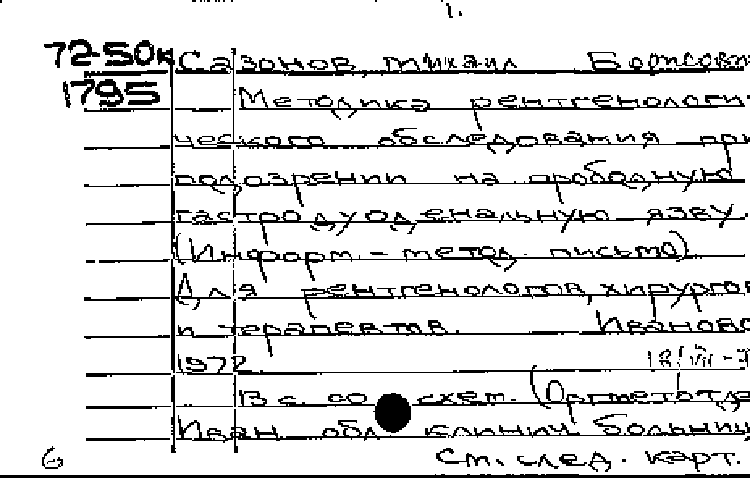 1.
72-50к Сазонов, Михаил Борисови
1795 Методика рентгенологи-
ческого обследования при
подозрении на прободную
гастродуоденальную язву.
(Информ.-метод. письмо)
Для рентгенологов, хирургов
и терапевтов. Иваново
1972 18/VII-
В с. со схем. (Оргметотде
Иван. обл. клинич. больниц
6 См. след. карт.